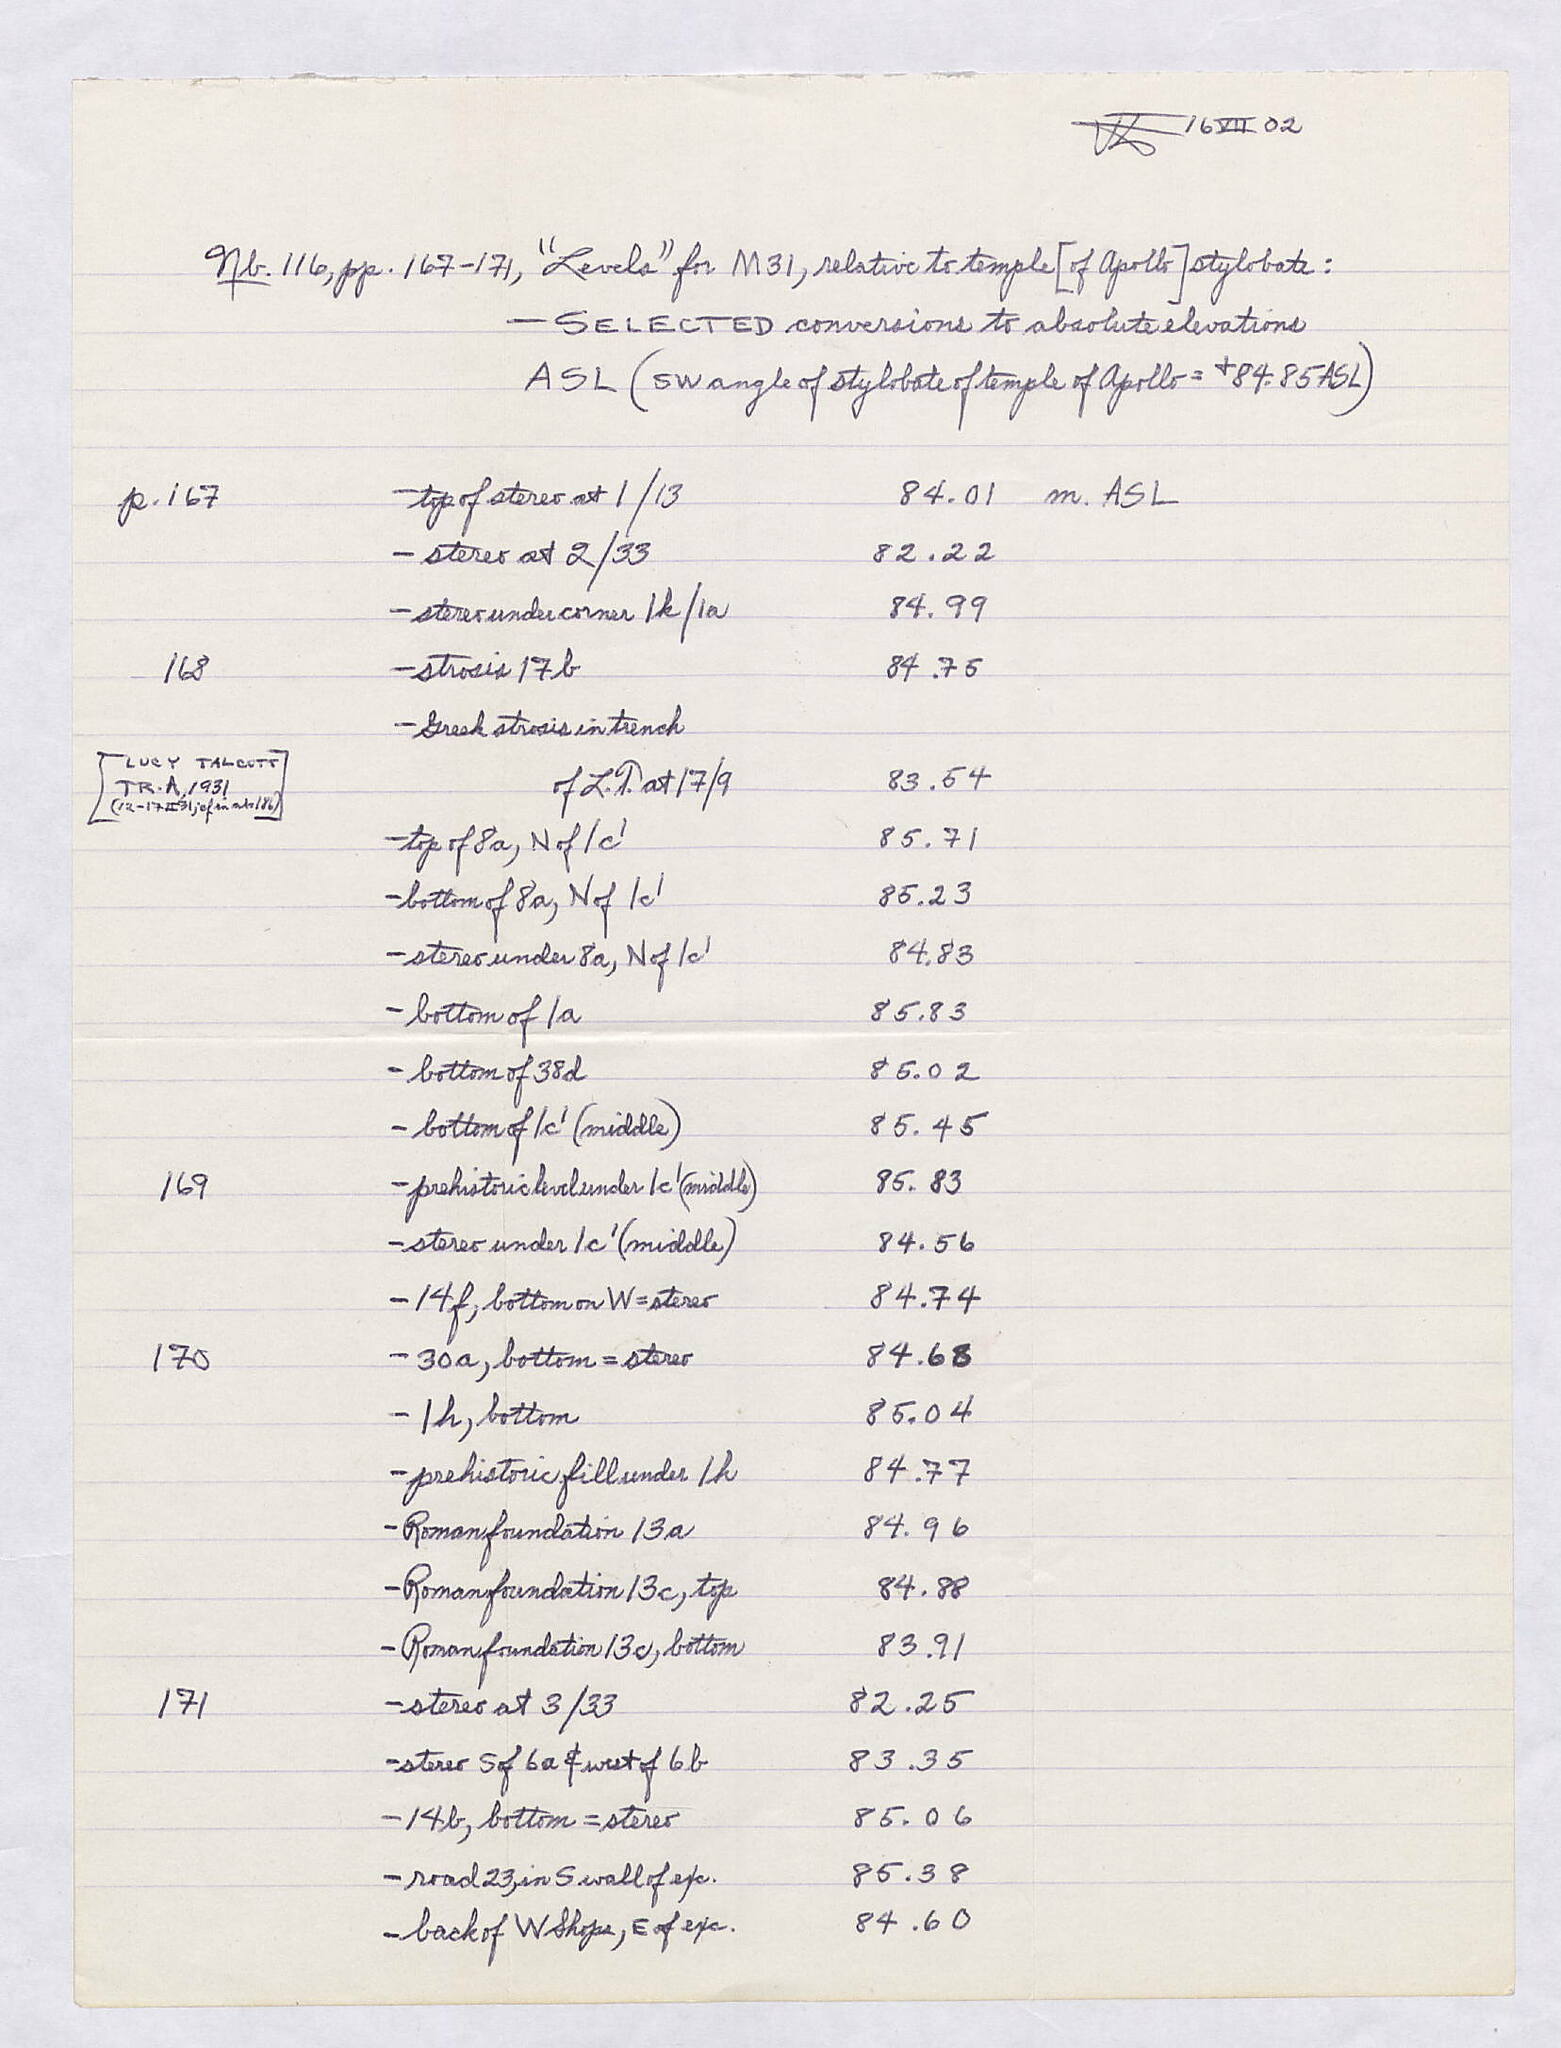 16 VII 02
Nb. 116, pp. 167-171, "Levels" for M31, relative to temple [of Apollo] stylobate:
— SELECTED conversions to absolute elevations
ASL (SW angle of stylobate of temple of Apollo = +84.85 ASL)
p. 167 - top of stereo at 1/13 84.01 m. ASL
- stereo at 2/33 82.22
- stereo under corner 1k/1a 84.99
168 - strosis 17b 84.75
- Greek strosis in trench
[LUCY TALCOTT
TR. A, 1931
of L.T. at 17/9 83.54
- top of 8a, N of 1c' 85.71
- bottom of 8a, N of 1c' 85.23
- stereo under 8a, N of 1c' 84.83
- bottom of 1a 85.83
- bottom of 38d 85.02
- bottom of 1c' (middle) 85.45
169 - prehistoric level under 1c' (middle) 85.83
- stereo under 1c' (middle) 84.56
- 14f, bottom on W = stereo 84.74
170 - 30a, bottom = stereo 84.68
- 1h, bottom 85.04
- prehistoric fill under 1h 84.77
- Roman foundation 13a 84.96
- Roman foundation 13c, top 84.88
- Roman foundation 13c, bottom 83.91
171 - stereo at 3/33 82.25
- stereo S of 6a & west of 6b 83.35
- 14b, bottom = stereo 85.06
- road 23, in S wall of exc. 85.38
- back of W Shops, E of exc. 84.60